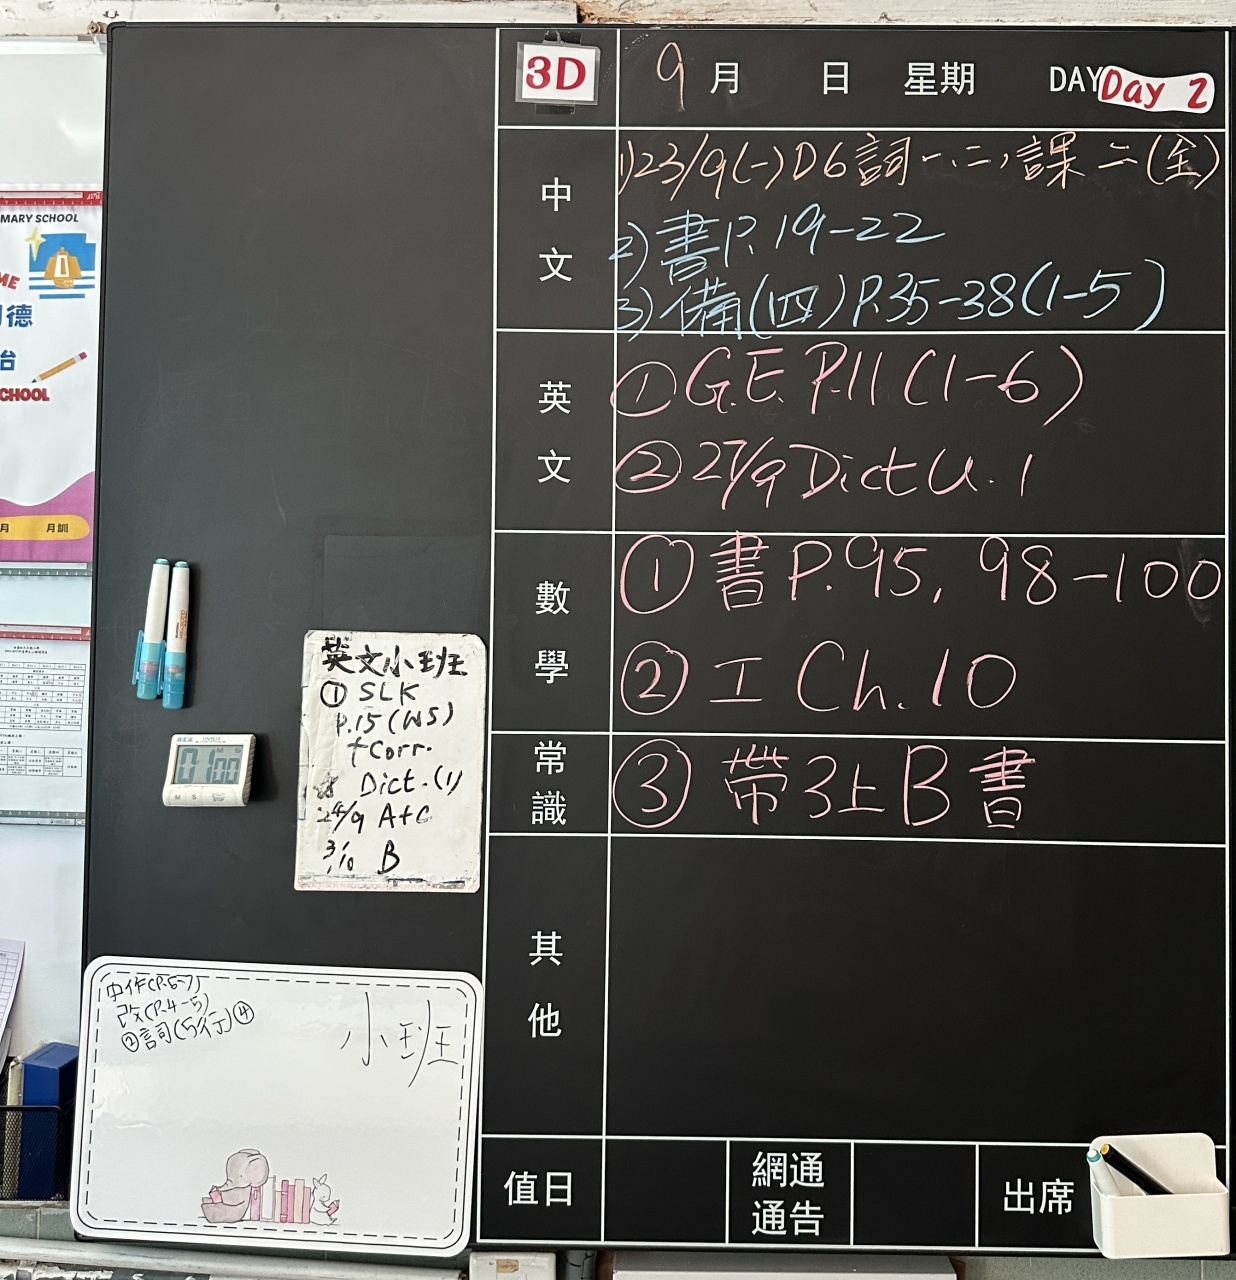 3D
9月 日 星期 DAY Day 2
中文
1)23/9(一)D6詞一、二,課二(全)
2)書P.19-22
3)備(四)P.35-38(1-5)
英文
①G.E. P.11(1-6)
②27/9 Dict U.1
數學
①書P.95, 98-100
②工 Ch.10
常識
③帶3上B書
其他
值日
網通通告
出席
英文小班
①SLK
P.15(WS)
+Corr.
Dict.(1)
24/9 A+C
3/10 B
小班
中作(P.6-7)
改(P.4-5)
②詞(5行)④
MARY SCHOOL
ME
德
CHOOL
月 月訓
01 00
M S